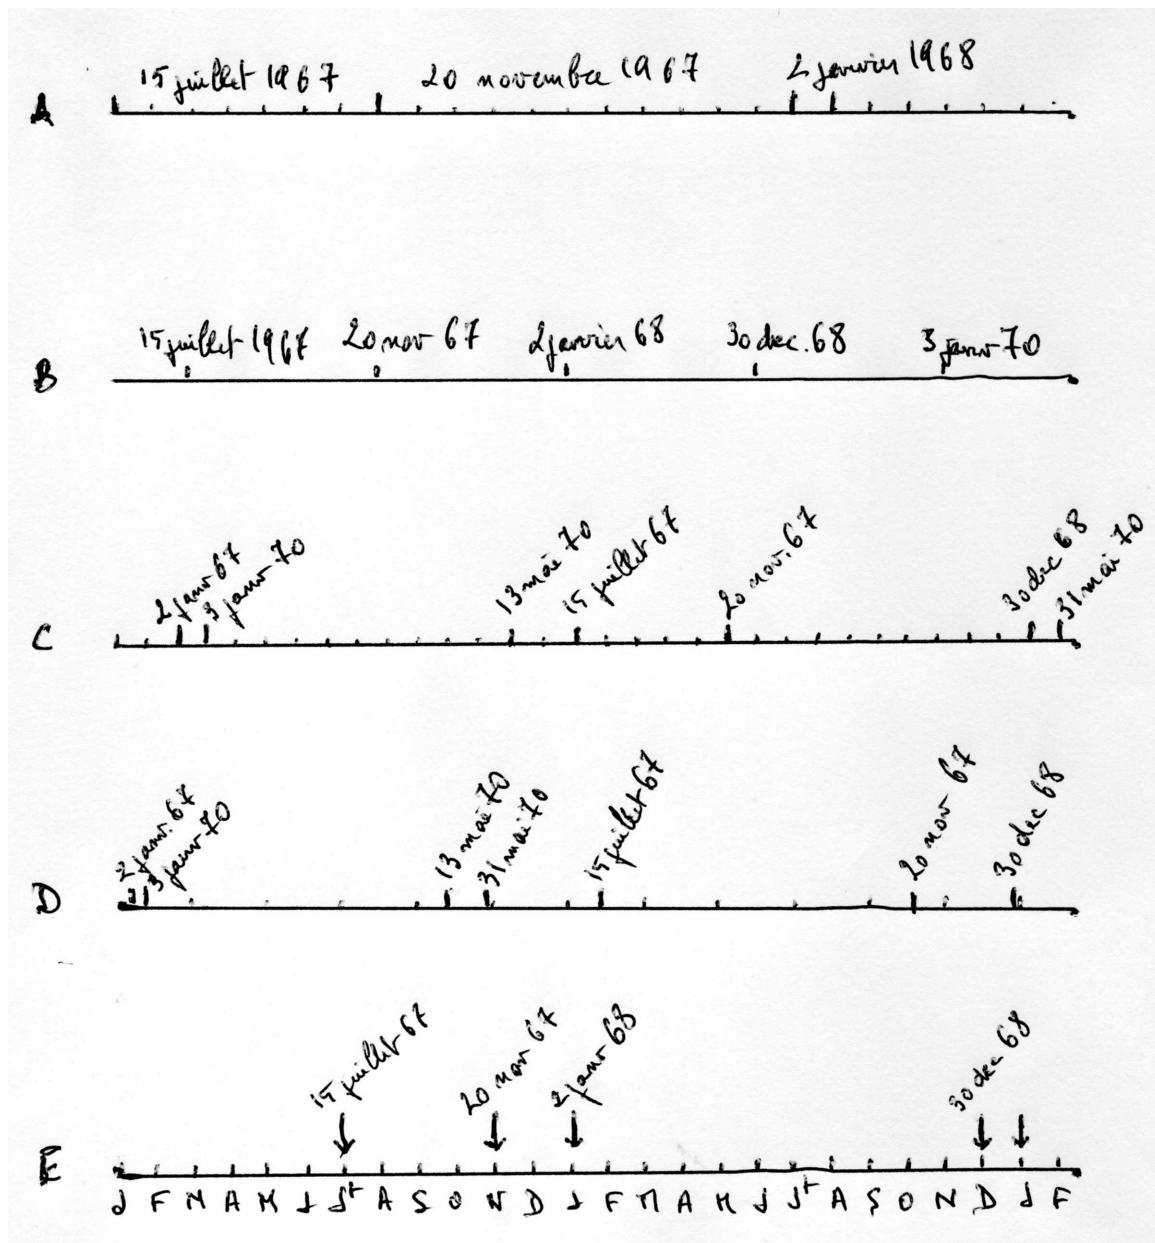 15 juillet 1967 20 novembre 1967 2 janvier 1968
A
15 juillet 1967 20 nov 67 2 janvier 68 30 dec. 68 3 janv 70
B
2 janv 67 3 janv 70 13 mai 70 15 juillet 67 20 nov. 67 30 dec 68 31 mai 70
C
2 janv. 67 3 janv 70 13 mai 70 31 mai 70 15 juillet 67 20 nov 67 30 dec 68
D
15 juillet 67 20 nov 67 2 janv 68 30 dec 68
E
J F M A M J Jt A S O N D J F M A M J Jt A S O N D J F